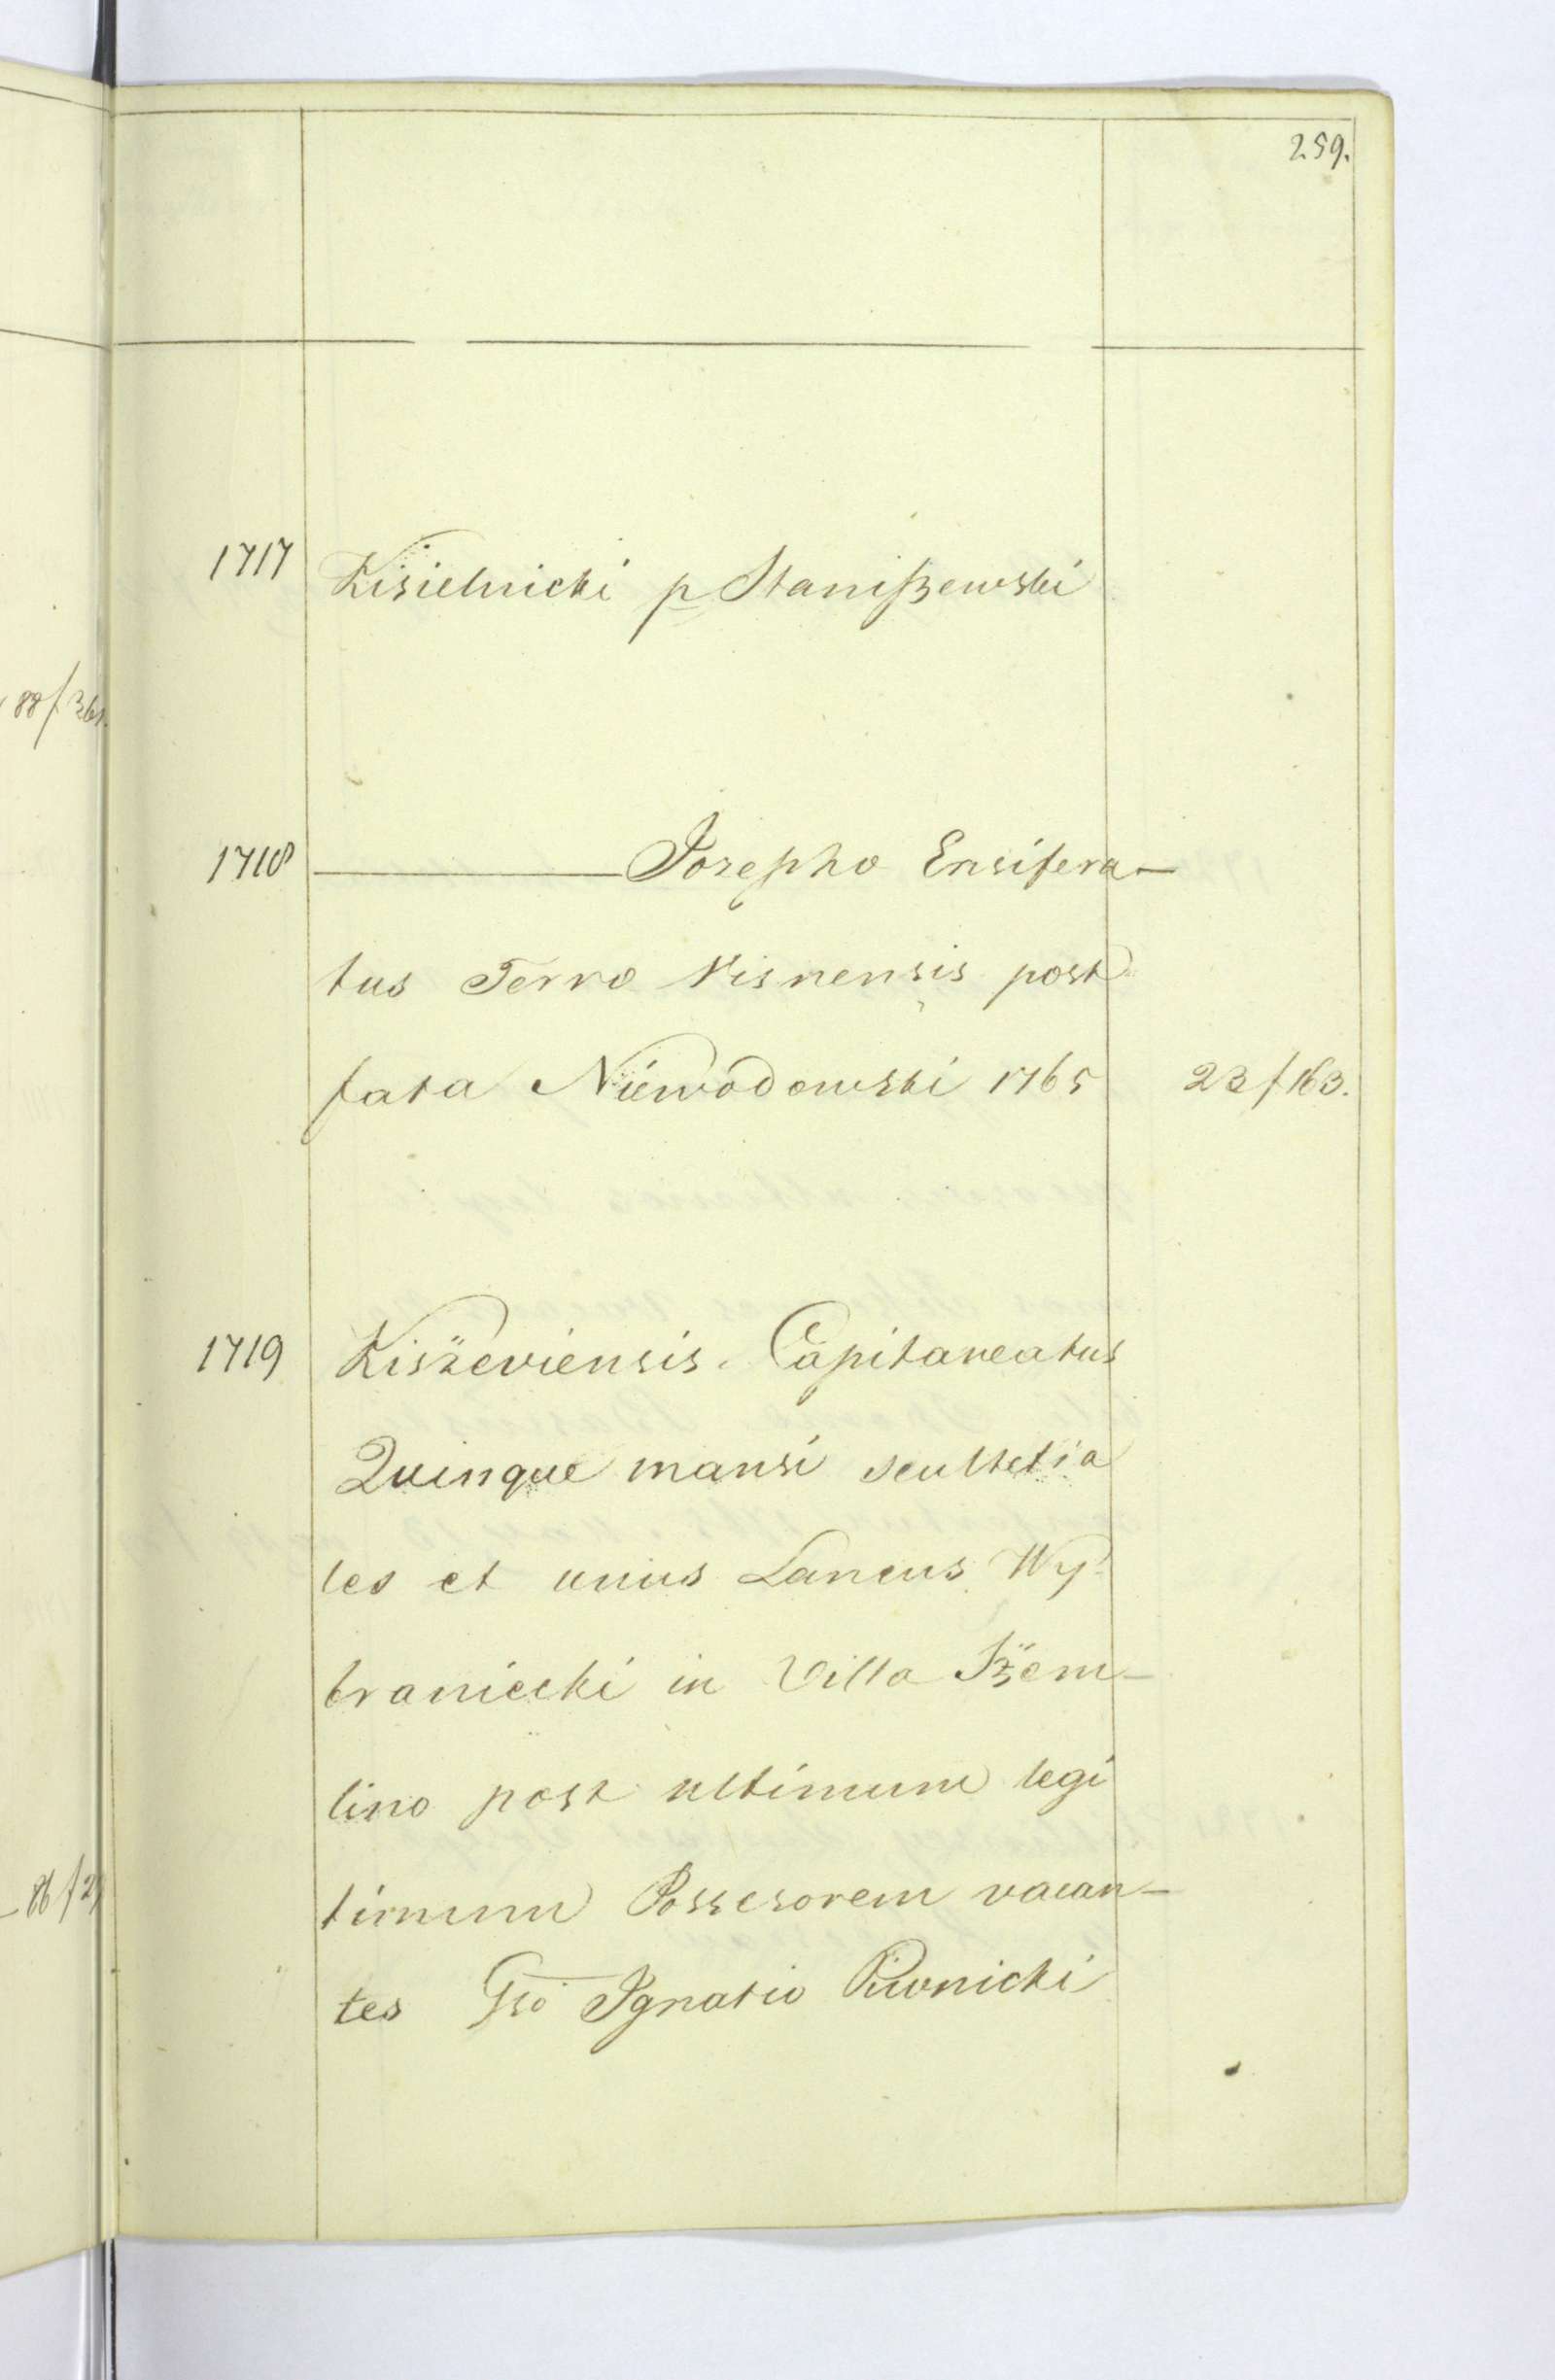 259.
1717 Kisielnicki p Staniszewski
1718 ——— Josepho Ensifera—
tus Terro Visnensis post
fata Niewodowski 1765 23 f 163.
1719 Kiszeviensis Capitaneatus
Quinque mansi scultetia
les et unus Laneus Wy-
braniecki in Villa Szem—
lino post ultimum legi
timum Possesorem vacan—
tes Gso Ignatio Piwnicki